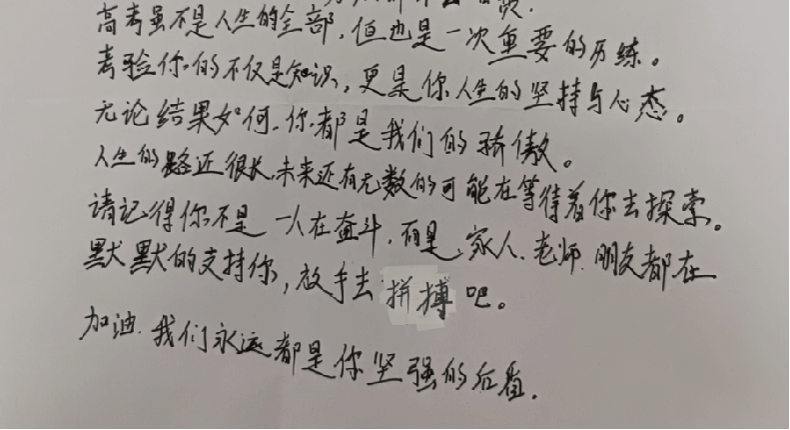 高考虽不是人生的全部，但也是一次重要的历练。
考验你的不仅是知识，更是你人生的坚持与心态。
无论结果如何，你都是我们的骄傲。
人生的路还很长，未来还有无数的可能在等待着你去探索。
请记得你不是一人在奋斗，而是家人、老师、朋友都在
默默的支持你，放手去拼搏吧。
加油，我们永远都是你坚强的后盾。